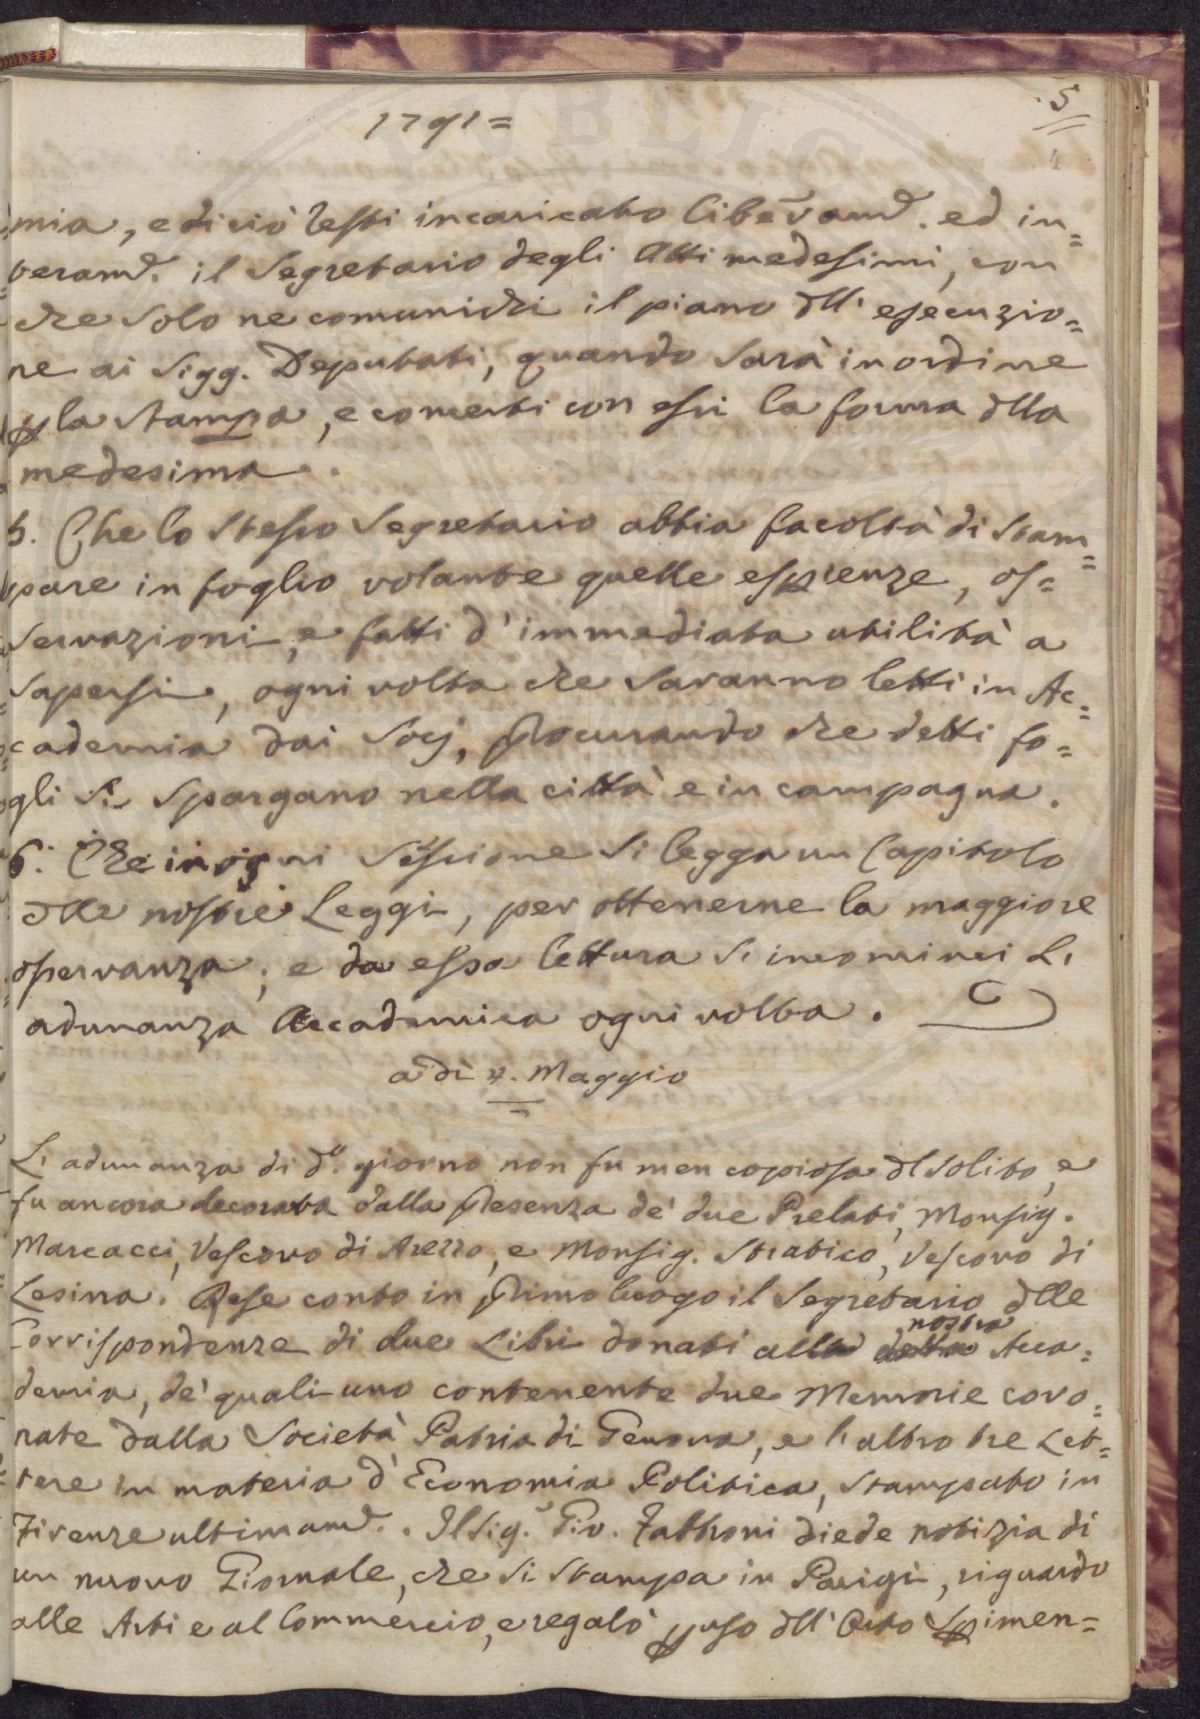 1791=
5
4
mia, e di ciò resti incaricato liberam.e ed in=
teram.e il Segretario degli Atti medesimi, con
che solo ne comunichi il piano dll' esecuzio=
ne ai Sigg. Deputati, quando sarà in ordine
p la stampa, e concerti con essi la forma dlla
medesima.
5. Che lo stesso Segretario abbia facoltà di stam=
pare in foglio volante quelle esprienze, os=
servazioni, e fatti d' immediata utilità a
sapersi, ogni volta che saranno letti in Ac=
cademia dai Socj, procurando che detti fo=
gli si spargano nella città e in campagna.
6. Che in ogni Sessione si legga un Capitolo
dlle nostre Leggi, per ottenerne la maggiore
osservanza; e da essa lettura si incominci L'
adunanza Accademica ogni volta.
a dì 4. Maggio
L' adunanza di d.o giorno non fu men copiosa dl solito, e
fu ancora decorata dalla presenza de' due Prelati, Monsig.
Marcacci, Vescovo di Arezzo, e Monsig. Stratico, Vescovo di
Lesina. Rese conto in primo luogo il Segretario dlle
Corrispondenze di due Libri donati alla nostra Acca=
demia, de' quali uno contenente due Memorie coro=
nate dalla Società Patria di Genova, e l' altro tre Let=
tere in materia d' Economia Politica, stampato in
Firenze ultimam.e. Il Sig.r Gio. Fabbroni diede notizia di
un nuovo Giornale, che si stampa in Parigi, riguardo
alle Arti e al Commercio, e regalò p uso dll' Orto Sprimen=